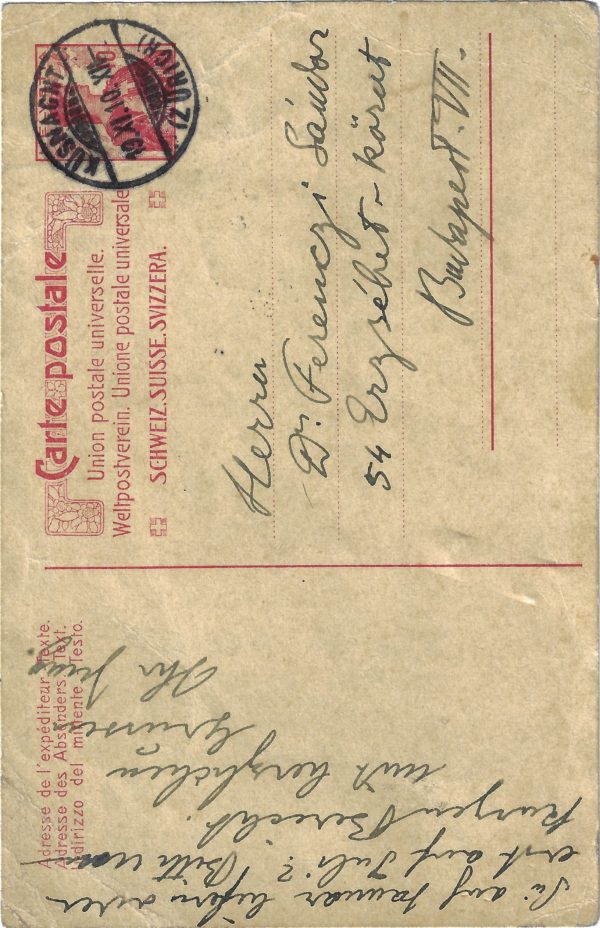 Carte postale
Union postale universelle.
Weltpostverein. Unione postale universale
SCHWEIZ. SUISSE. SVIZZERA.
KÜSNACHT
(ZÜRICH)
Herrn
Dr. Ferenczi Sándor
54 Erzsébet-körut
Budapest. VII.
Adresse de l'expéditeur. Texte.
Adresse des Absenders. Text.
Indirizzo del mittente. Testo.
Sie auf Januar liefern oder
erst auf Juli? Bitte um
kurzen Bericht.
mit herzlichen
Grüssen
Ihr Jung